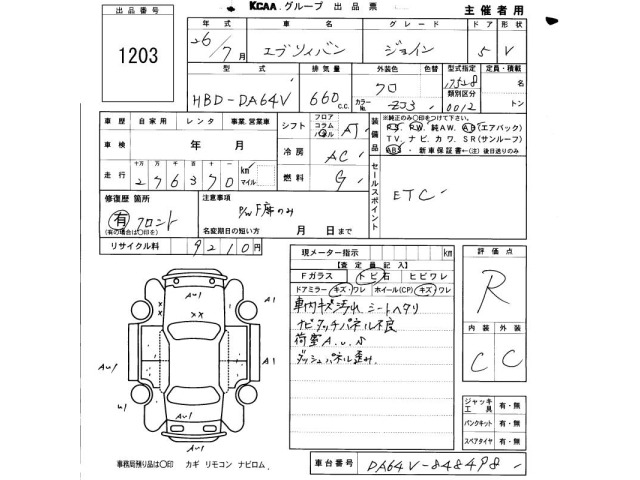 出品番号 KCAA グループ 出品票 主催者用
1203
年式 車名 グレード ドア 形状
26/7月 エブリィバン ジョイン 5 V
型式 排気量 外装色 色替 型式指定 定員・積載
HBD-DA64V 660c.c. クロ カラーNo. Z03 17528 名
類別区分 0012 トン
車歴 自家用 レンタ 事業.営業車 シフト フロア コラム パネル AT
装備品 ※純正のみ〇印をつけて下さい。
P.S. P.W. 純AW. A.B(エアバック)
TV. ナビ. カワ. SR(サンルーフ)
ABS ・新車保証書←(注) 後日送りのみ
車検 年 月 冷房 AC
走行 十万 万 千 百 十 km マイル 燃料 G
276370
セールスポイント ETC
修復歴 箇所 注意事項
有 フロント P/W F席のみ
(有の場合は〇印を) 名変期日の短い方 月 日まで
リサイクル料 9210円
現メーター指示 km
【査定員記入】
Fガラス トビ石 ヒビワレ
ドアミラー キズ・ワレ ホイール(CP) キズ・ワレ
車内キズ汚れ シートヘタリ
ナビタッチパネル不良
荷室A.U.小
ダッシュパネル歪み
評価点
R
内装 外装
C C
A1 AU1 XX A1
AU1 A1
U1 AU1
ジャッキ 工具 有・無
パンクキット 有・無
スペアタイヤ 有・無
事務局残り品は〇印 カギ リモコン ナビロム.
車台番号 DA64V-848498